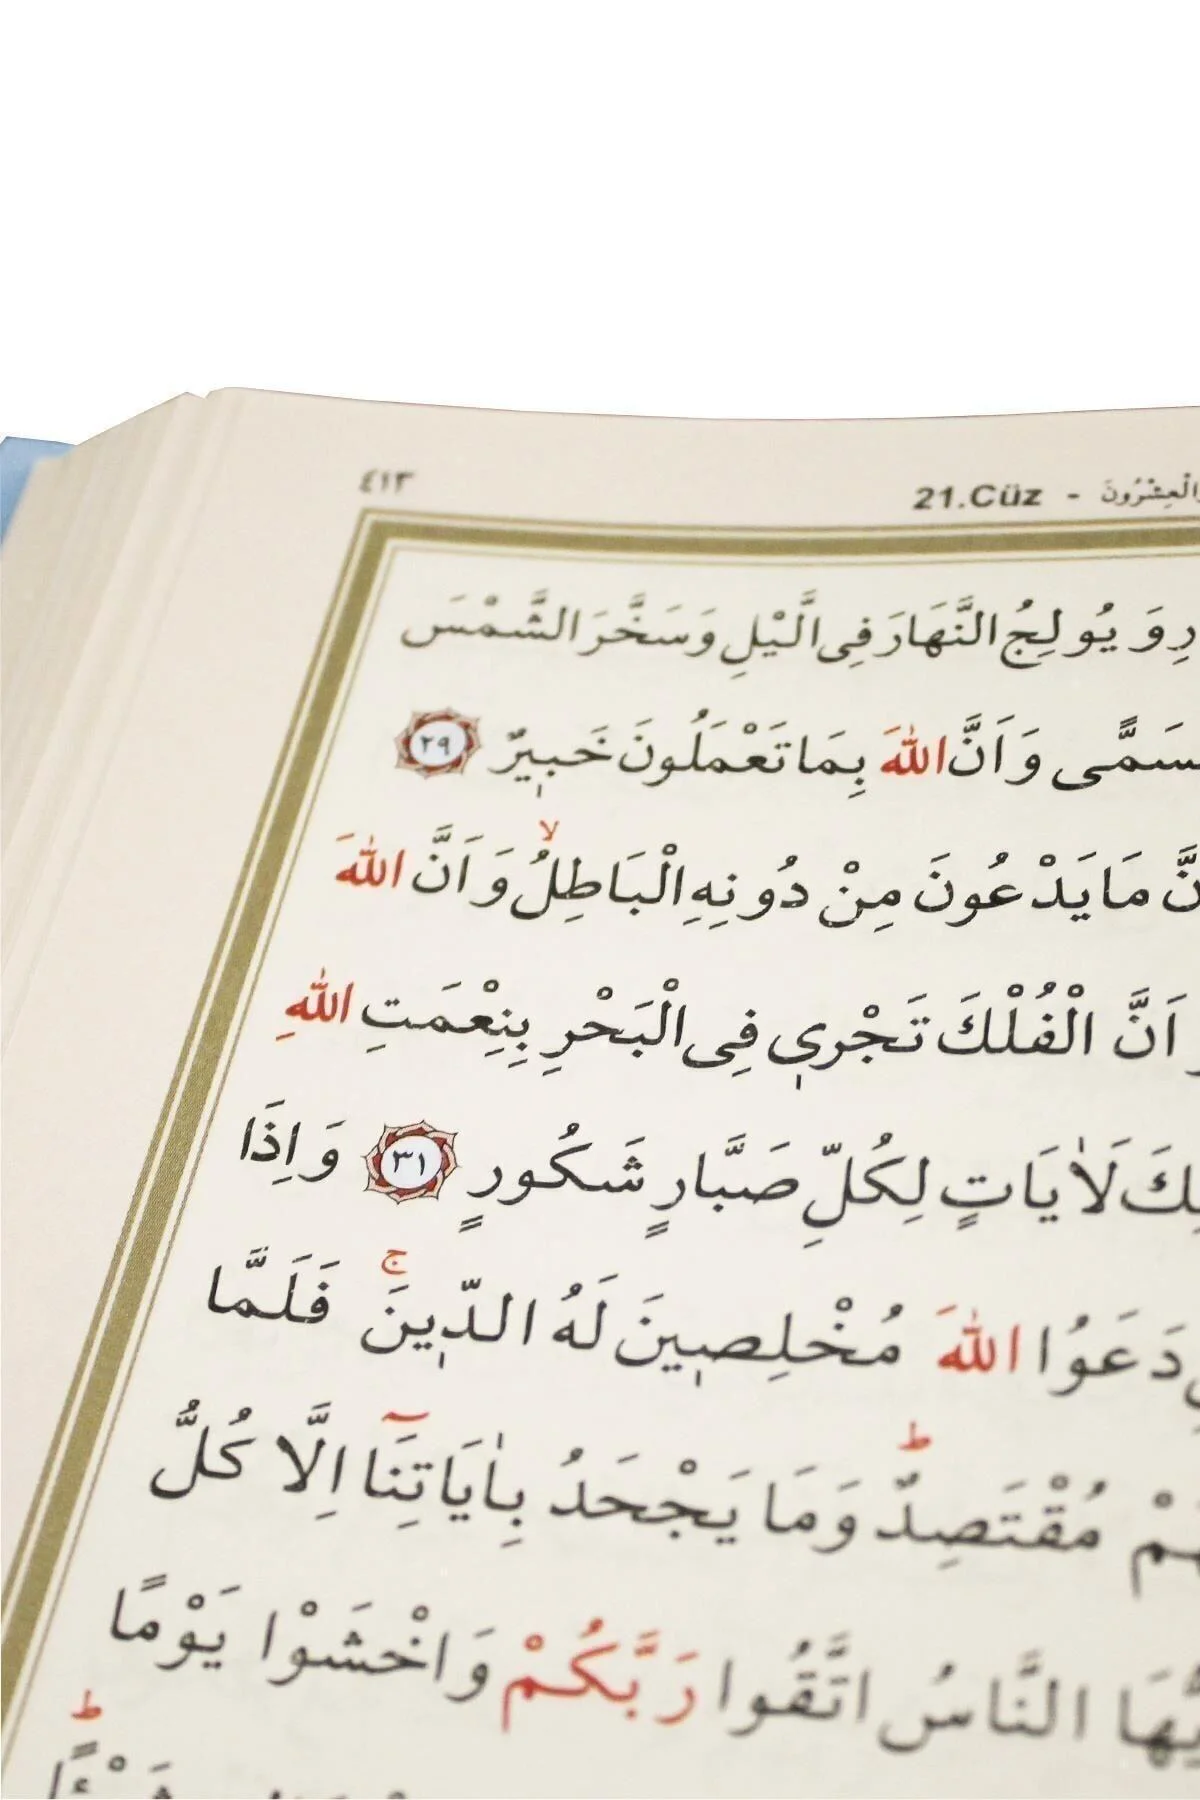 ٤١٣
21.Cüz - الْعِشْرُونَ
وَيُولِجُ النَّهَارَ فِى الَّيْلِ وَسَخَّرَ الشَّمْسَ
مُسَمًّى وَاَنَّ اللّٰهَ بِمَا تَعْمَلُونَ خَبٖيرٌ ﴿٢٩﴾
مَا يَدْعُونَ مِنْ دُونِهِ الْبَاطِلُۙ وَاَنَّ اللّٰهَ
اَنَّ الْفُلْكَ تَجْرٖي فِى الْبَحْرِ بِنِعْمَتِ اللّٰهِ
لَاٰيَاتٍ لِكُلِّ صَبَّارٍ شَكُورٍ ﴿٣١﴾ وَاِذَا
دَعَوُا اللّٰهَ مُخْلِصٖينَ لَهُ الدّٖينَۚ فَلَمَّا
مُقْتَصِدٌؕ وَمَا يَجْحَدُ بِاٰيَاتِنَٓا اِلَّا كُلُّ
النَّاسُ اتَّقُوا رَبَّكُمْ وَاخْشَوْا يَوْمًا